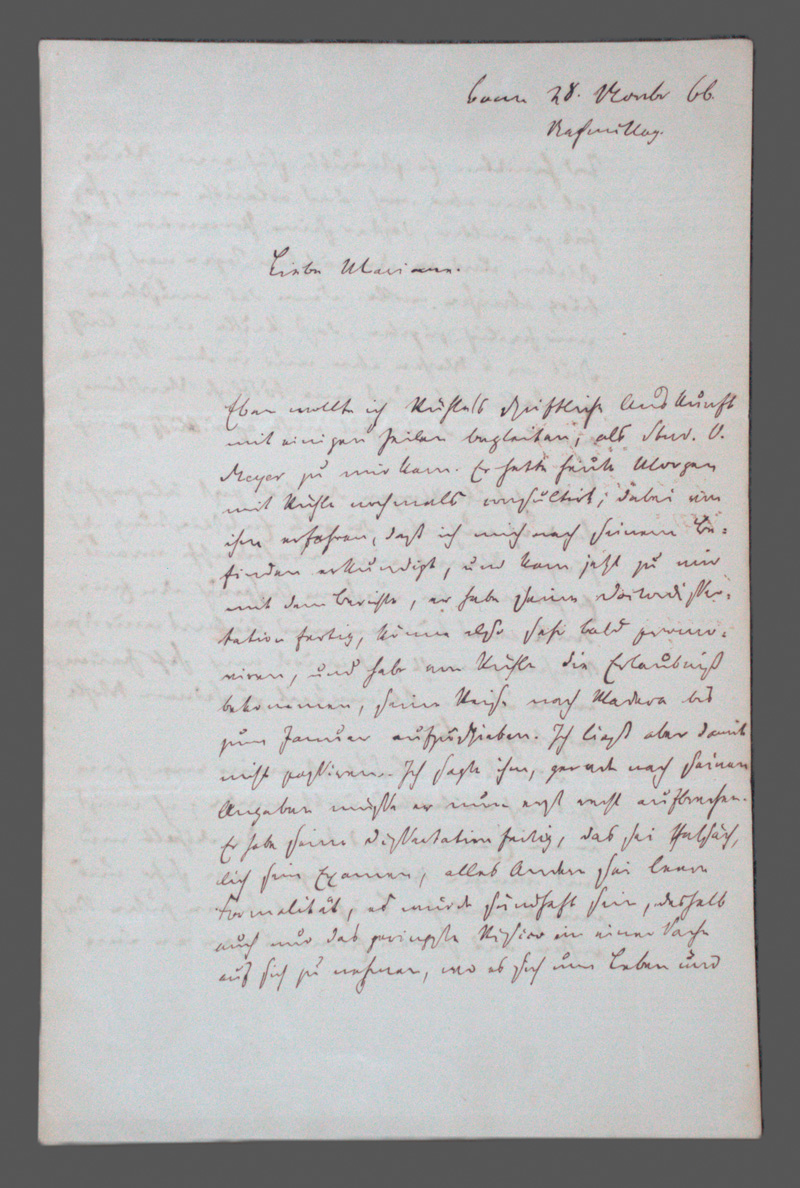 Bonn 28. Novbr 66.
Nachmittag.
Liebe Marianne.
Eben wollte ich Rühle's schriftliche Auskunft
mit einigen Zeilen begleiten, als Stud. O.
Meyer zu mir kam. Er hatte heute Morgen
mit Rühle nochmals consultirt; dabei von
ihm erfahren, daß ich mich nach seinem Be=
finden erkundigt, und kam jetzt zu mir
mit dem Berichte, er habe seine Doctordisser=
tation fertig, könne also sehr bald promo=
viren, und habe von Rühle die Erlaubniß
bekommen, seine Reise nach Madera bis
zum Januar aufzuschieben. Ich ließ aber damit
nicht passiren. Ich sagte ihm, gerade nach seinen
Angaben müsse er nun erst recht aufbrechen.
Er habe seine Dissertation fertig, das sei thatsäch,
lich sein Examen, alles Andere sei leere
Formalität, es würde sündhaft sein, deshalb
auch nur das geringste Risico in einer Sache
auf sich zu nehmen, wo es sich um Leben und